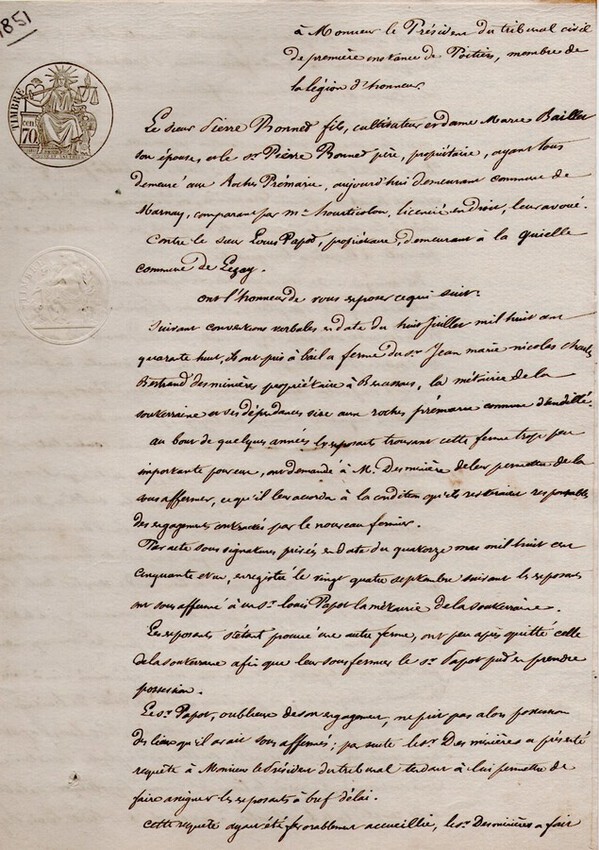 1851
à Monsieur le Président du tribunal civil
de première instance de Poitiers, membre de
la légion d'honneur.
TIMBRE
cen 70
Le sieur Pierre Bonnet fils, cultivateur et dame Marie Bailler
son épouse, et le sr. Pierre Bonnet père, propriétaire, ayant tous
demeuré aux Roches Prémarie, aujourd'hui demeurant commune de
Marnay, comparant par me. hourticolon, licencié en Droit, leur avoué.
Contre le sieur Louis Papot, propriétaire, demeurant à la
commune de Lezay.
ont l'honneur de vous exposer ce qui suit:
Suivant conventions verbales en date du huit Juillet mil huit cent
quarante huit, ils ont pris à bail a ferme du sr. Jean marie nicolas Charles
Bertrand desminières propriétaire à la métairie de la
souterraine et ses dépendances sise aux roches prémarie commune d'andillé.
au bout de quelques années les exposants trouvant cette ferme trop peu
importante pour eux, ont demandé à M. Desminière de leur permettre de la
sous affermer, ce qu'il leur accorda à la condition qu'ils resteraient responsables
des engagements contractés par le nouveau fermier.
Par acte sous signatures privées en date du quatorze mars mil huit cent
cinquante et un, enregistré le vingt quatre septembre suivant les exposants
ont sous affermé à un sr. Louis Papot la métairie de la souterraine.
Les exposants s'étant procuré une autre ferme, ont peu après quitté celle
de la souterraine afin que leur sous fermier le sr. Papot put en prendre
possession.
Le sr. Papot, oublieux de son engagement, ne prit pas alors possession
des lieux qu'il avait sous affermés; par suite le sr. Desminières a présenté
requête à Monsieur le Président du tribunal tendant à lui permettre de
faire assigner les exposants à bref délai.
Cette requête ayant été favorablement accueillie, le sr. Desminières a fait